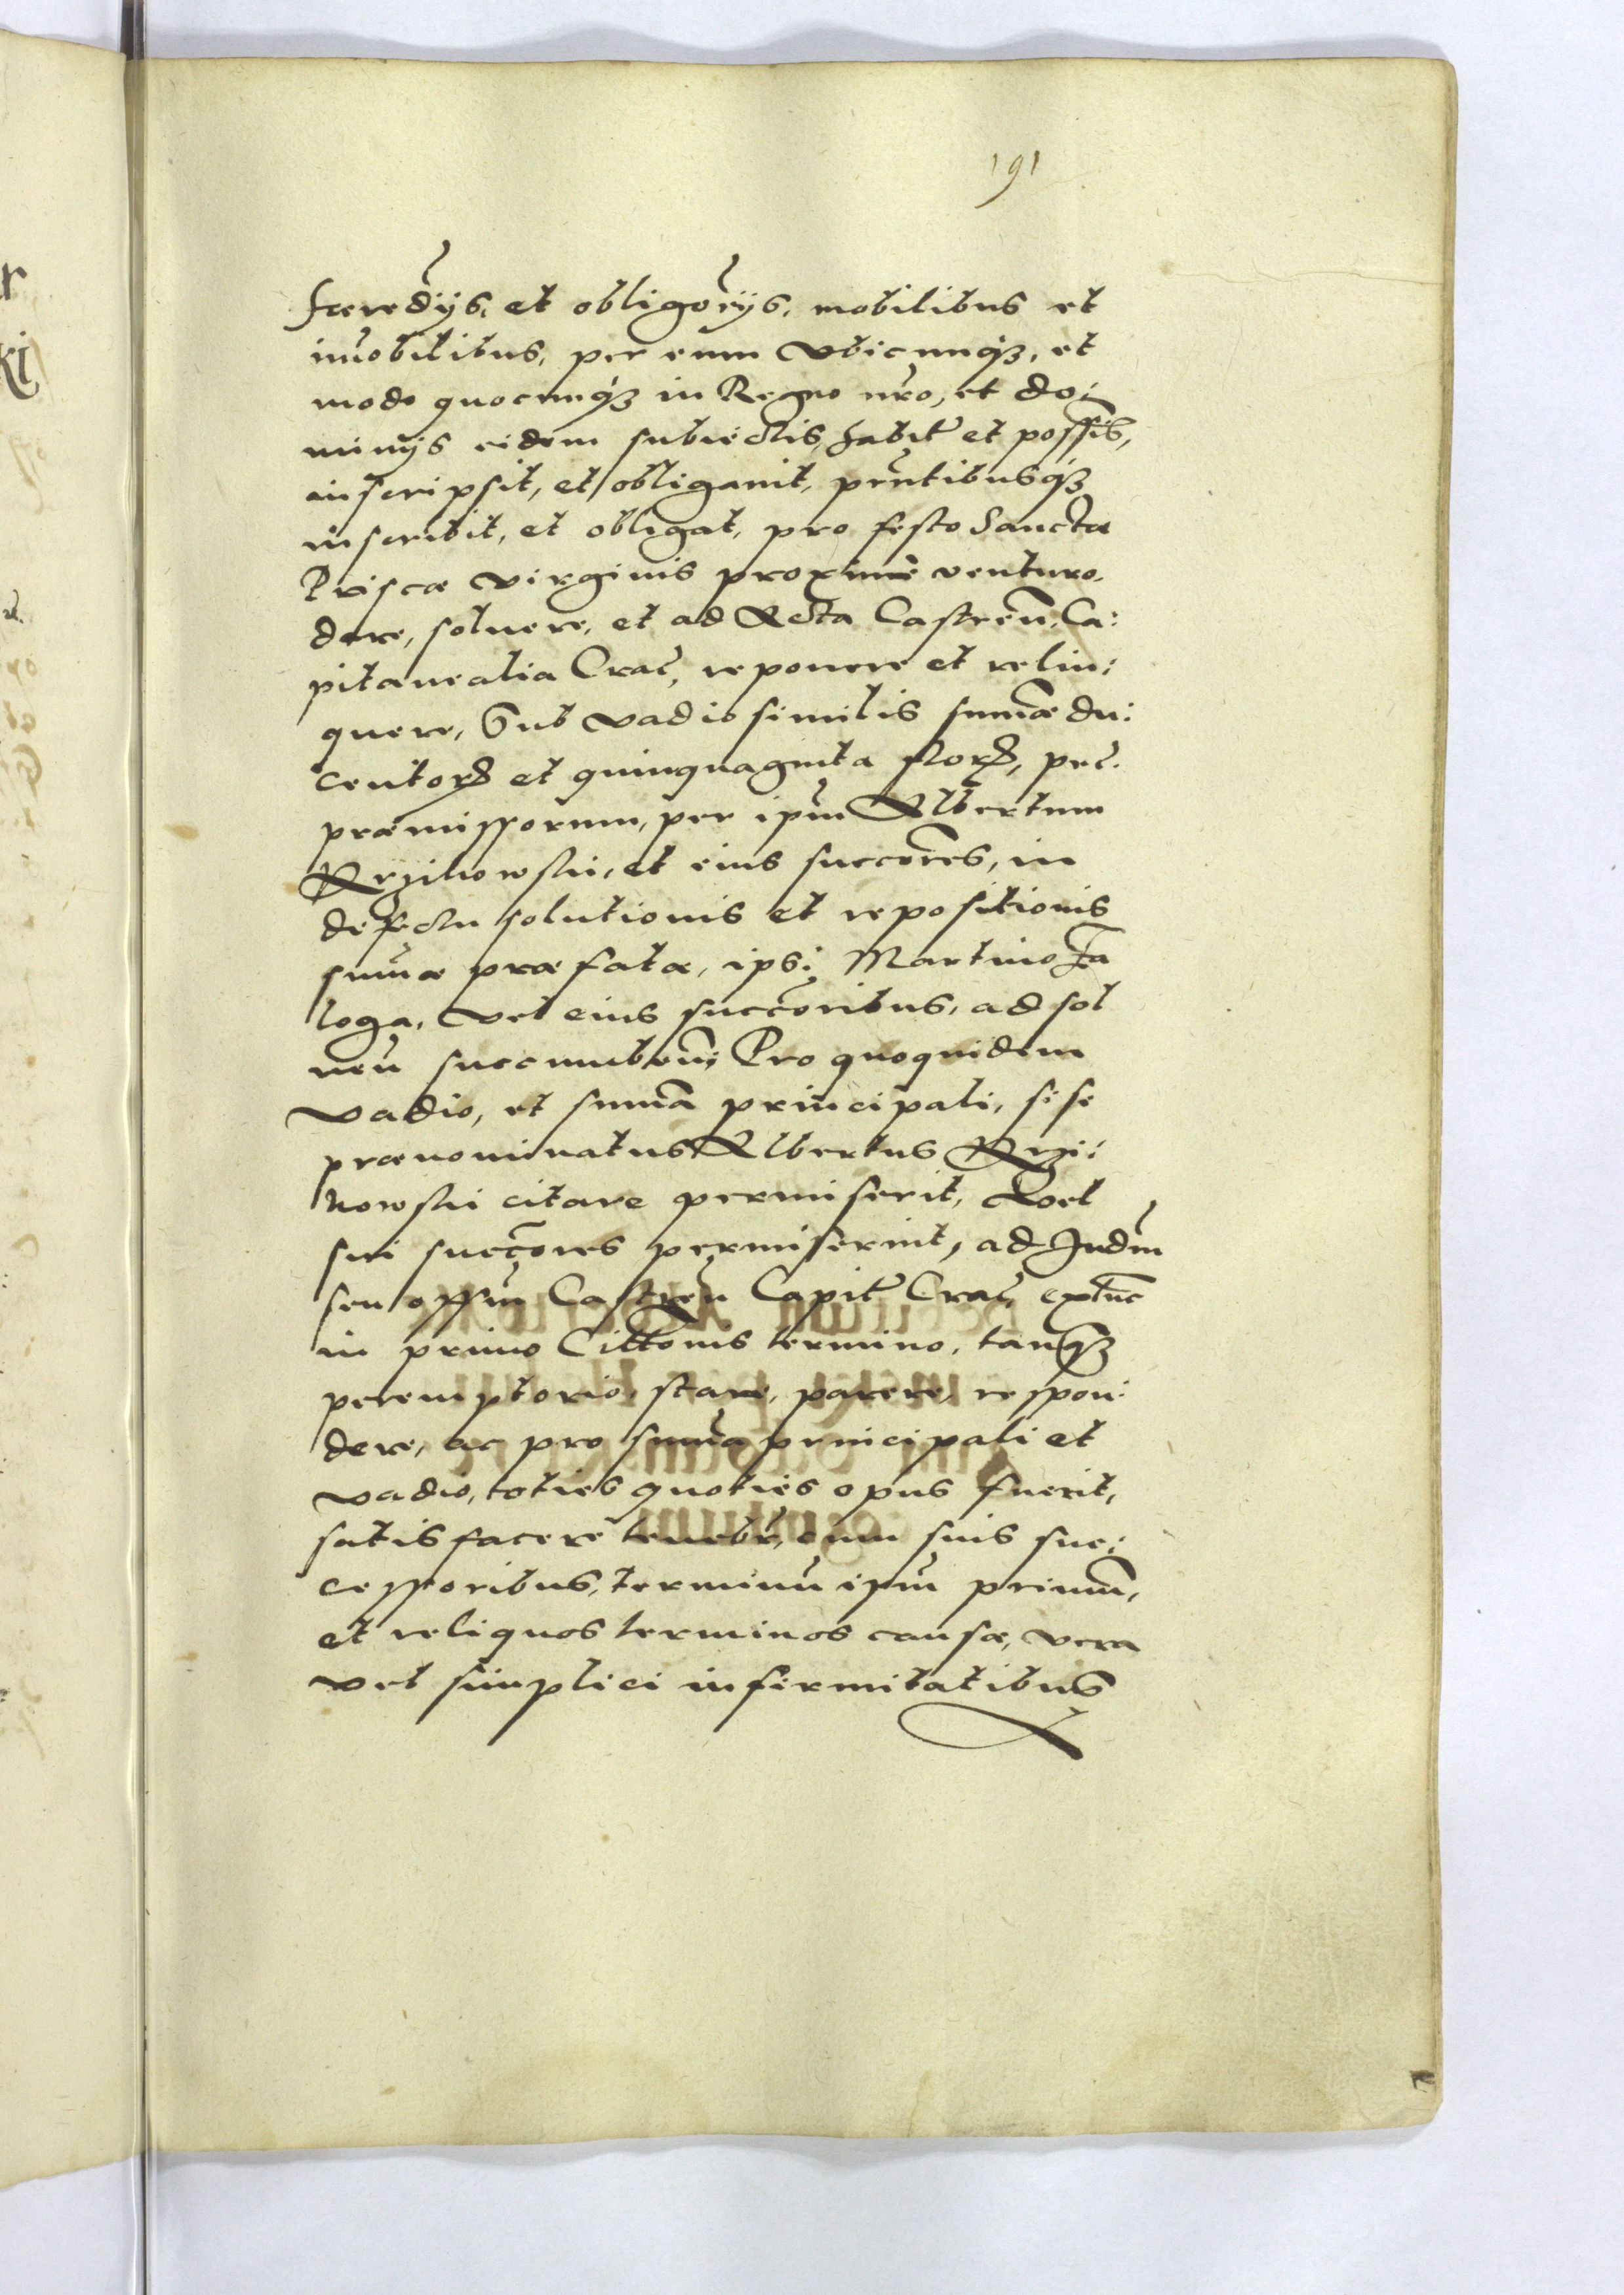 191
haeredijs, et obligorijs, mobilibus et
imobilibus, per eum vbicunq3, et
modo quocunq3 in Regno nro, et do:
minijs eidem subiectis, habit et possess,
inscripsit, et obligauit, prntibusq3
inscribit, et obligat, pro festo Sanctae
Priscae virginis proxime venturo,
dare, soluere, et ad Acta Castren, Ca:
pitanealia Crac, reponere et relin:
quere, Sub vadio similis summae du:
centor et quinquaginta flor, pec.
praemissorum, per ipm Albertum
succores, in
defectu solutionis et repositionis
summae praefatae, ipsi Martino Za
loga, vel eius succoribus, ad sol
uen succumben: Pro quoquidem
vadio, et summa principali, si se
praenominatus Albertus
citare permiserit, Vel
sui succores permiserint, ad Judm
seu offm Castren Capit Crac, extunc
in primo Cittonis termino, tanq3
peremptorio, stare, parere, respon:
dere, ac pro summa principali et
vadio, toties quoties opus fuerit,
satisfacere tenebr, cum suis suc:
cessoribus, terminu ipm primum,
et reliquos terminos causae, vera
vel simplici infirmitatibus